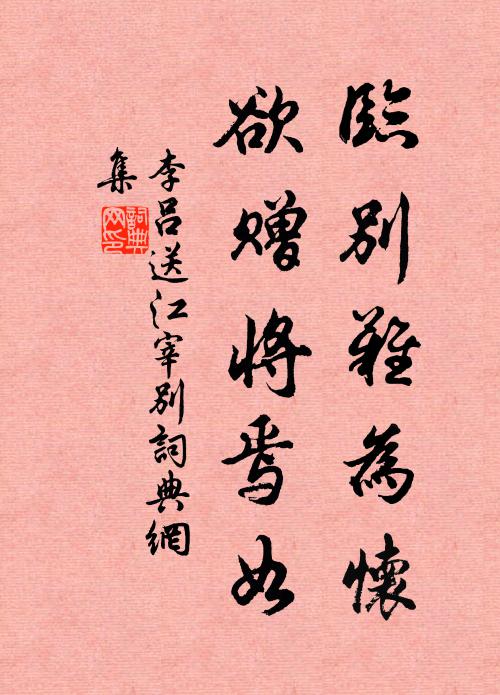 臨別難為懷
欲贈將焉如
李呂送江宰別詞典網
集
詞典
網印